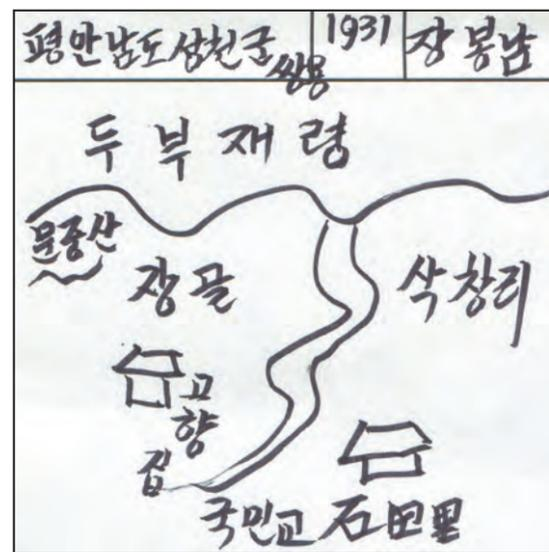 평안남도 성천군 쌍용
1931
장봉남
두부재령
문중산
장골
삭창리
고향집
국민교 石田里